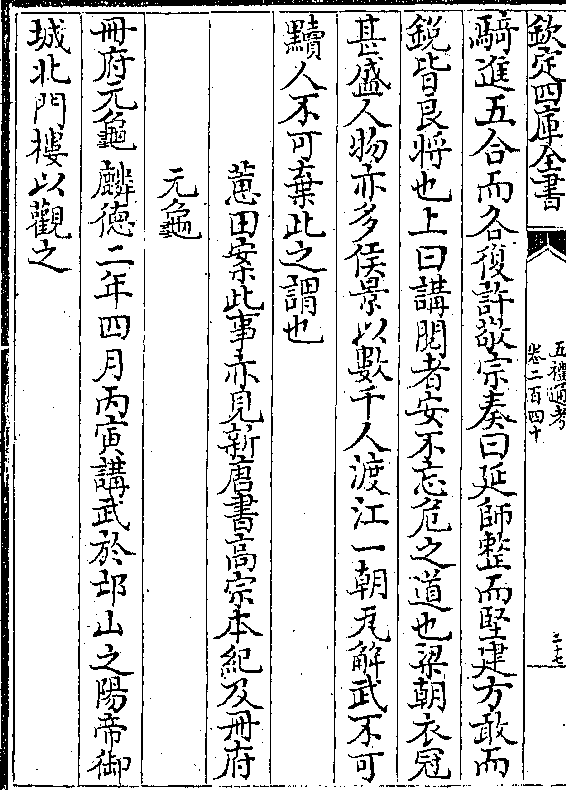 欽定四庫全書
五禮通考
卷二百四十
三十七
騎進五合而各復許敬宗奏曰延師整而堅建方敢而
銳皆良將也上曰講閱者安不忘危之道也梁朝衣冠
甚盛人物亦多侯景以數千人渡江一朝瓦解武不可
黷人不可棄此之謂也
蕙田案此事亦見新唐書高宗本紀及冊府
元龜
冊府元龜麟德二年四月丙寅講武於邙山之陽帝御
城北門樓以觀之